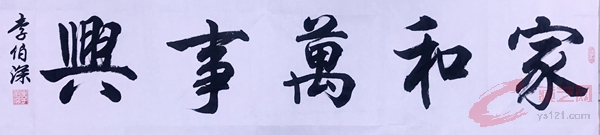 家和萬事興
李伯深
ys121.com